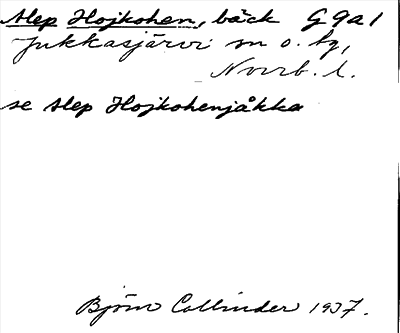 Alep Hojkohen, bäck G9a1
Jukkasjärvi sn o. tg,
Norrb. l.
se Alep Hojkohenjåkka
Björn Collinder 1937.